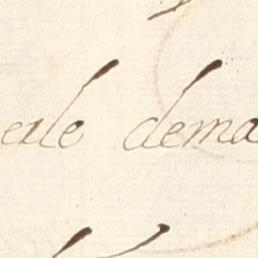 erle dema